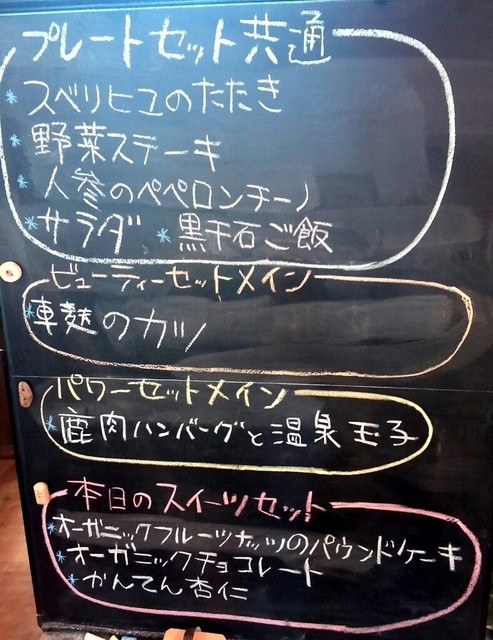 プレートセット共通
* スベリヒユのたたき
* 野菜ステーキ
* 人参のペペロンチーノ
* サラダ * 黒千石ご飯
ビューティーセットメイン
* 車麩のカツ
パワーセットメイン
* 鹿肉ハンバーグと温泉玉子
本日のスイーツセット
* オーガニックフルーツナッツのパウンドケーキ
* オーガニックチョコレート
* かんてん杏仁